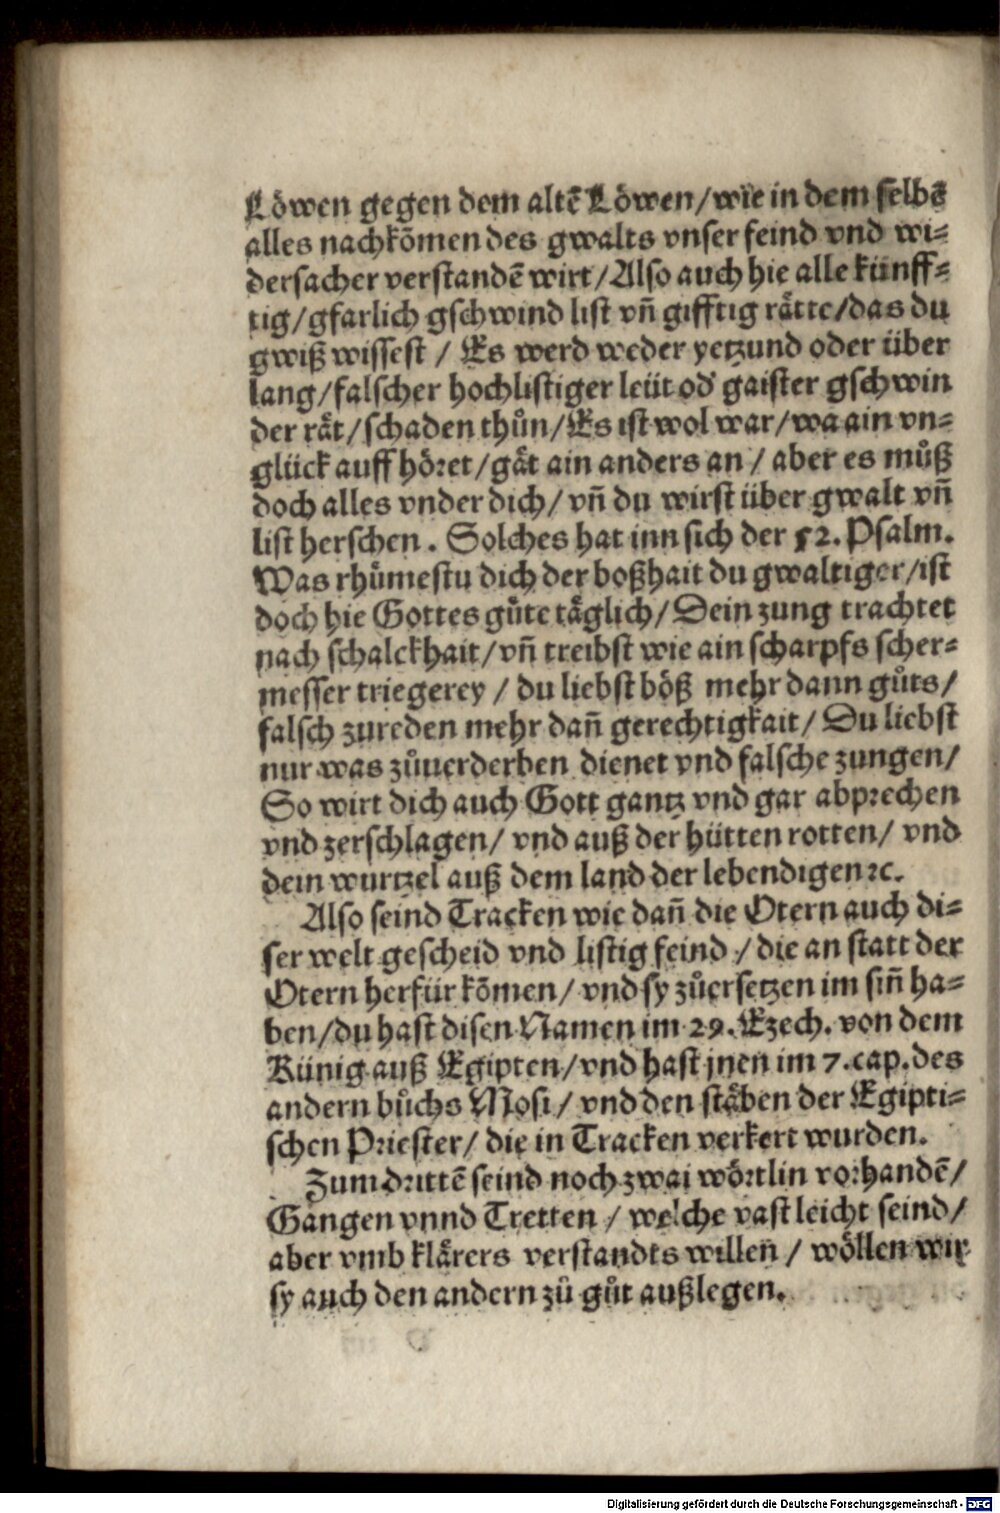 Löwen gegen dem altē Löwen/wie in dem selbē
alles nachkōmen des gwalts vnser feind vnd wi⸗
dersacher verstandē wirt/Also auch hie alle künff⸗
tig/gfarlich gschwind list vn̄ gifftig rätte/das du
gwiß wissest / Es werd weder yetzund oder über
lang/falscher hochlistiger leüt od' gaister gschwin
der rät/schaden thůn/Es ist wol war/wa ain vn⸗
glück auff höret/gät ain anders an / aber es můß
doch alles vnder dich/ vn̄ du wirst über gwalt vn̄
list herschen . Solches hat inn sich der 52. Psalm.
Was rhümestu dich der boßhait du gwaltiger/ist
doch hie Gottes gůte täglich/Dein zung trachtet
nach schalckhait/vn̄ treibst wie ain scharpfs scher⸗
messer triegerey / du liebst böß mehr dann gůts/
falsch zureden mehr dan̄ gerechtigkait/ Du liebst
nur was zůuerderben dienet vnd falsche zungen/
So wirt dich auch Gott gantz vnd gar abprechen
vnd zerschlagen/ vnd auß der hütten rotten/ vnd
dein wurtzel auß dem land der lebendigen ꝛc.
Also seind Tracken wie dan̄ die Otern auch di⸗
ser welt gescheid vnd listig feind / die an statt der
Otern herfür kōmen/ vnd sy zůersetzen im sin̄ ha⸗
ben/du hast disen Namen im 29. Ezech. von dem
Künig auß Egipten/vnd hast jnen im 7.cap.des
andern bůchs Mosi/ vnd den stäben der Egipti⸗
schen Priester/ die in Tracken verkert wurden.
Zum drittē seind noch zwai wörtlin vorhandē/
Gangen vnnd Tretten / welche vast leicht seind/
aber vmb klärers verstandts willen / wöllen wir
sy auch den andern zů gůt außlegen.
Digitalisierung gefördert durch die Deutsche Forschungsgemeinschaft - DFG